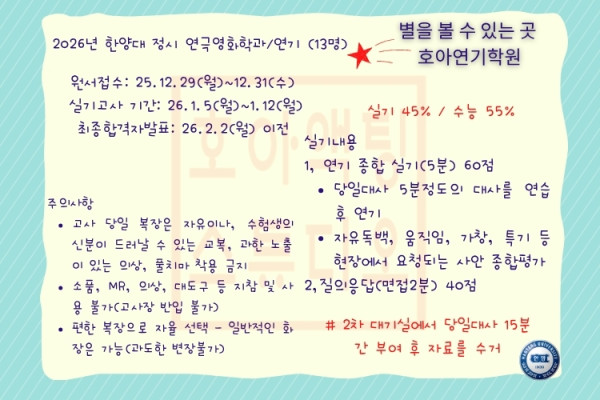 2026년 한양대 정시 연극영화학과/연기 (13명)
별을 볼 수 있는 곳
호아연기학원
원서접수: 25.12.29(월)~12.31(수)
실기고사 기간: 26.1.5(월)~1.12(월)
최종합격자발표: 26.2.2(월) 이전
실기 45% / 수능 55%
주의사항
• 고사 당일 복장은 자유이나, 수험생의
신분이 드러날 수 있는 교복, 과한 노출
이 있는 의상, 풀치마 착용 금지
• 소품, MR, 의상, 대도구 등 지참 및 사
용 불가(고사장 반입 불가)
• 편한 복장으로 자율 선택 - 일반적인 화
장은 가능(과도한 변장불가)
실기내용
1, 연기 종합 실기(5분) 60점
• 당일대사 5분정도의 대사를 연습
후 연기
• 자유독백, 움직임, 가창, 특기 등
현장에서 요청되는 사안 종합평가
2,질의응답(면접2분) 40점
# 2차 대기실에서 당일대사 15분
간 부여 후 자료를 수거
호아액팅
스튜디오